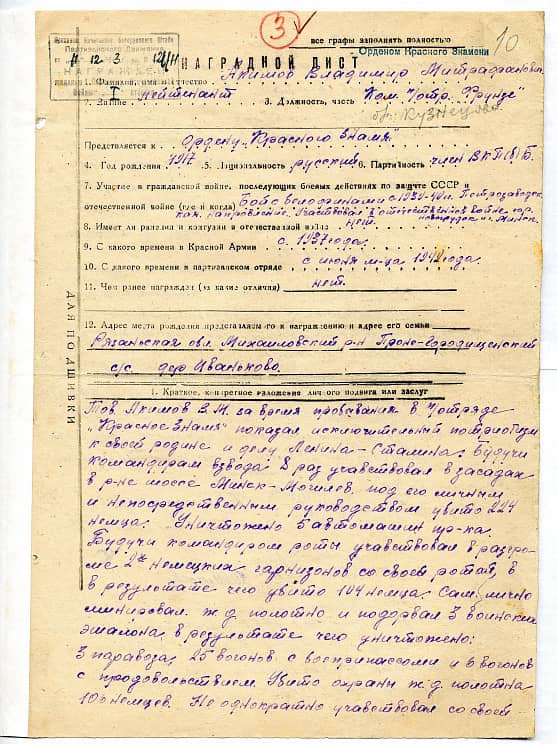 3
все графы заполнять полностью
Орденом Красного Знамени
10
Приказом Начальника Белорусского Штаба
Партизанского Движения
НАГРАЖДЕН
НАГРАДНОЙ ЛИСТ
1. Фамилия, имя и отчество Акимов Владимир Митрафанович
2. Звание лейтенант 3. Должность, часть Ком. отр. "Фрунзе"
бр. Кузнецова
Представляется к Ордену "Красного Знамя"
4. Год рождения 1917 5. Национальность русский 6. Партийность член ВКП(б)Б.
7. Участие в гражданской войне, последующих боевых действиях по защите СССР и
отечественной войне (где и когда) Бой с белофинами с 1939-40 г. Петрозаводск.
направление. Участвовал в отечественной войне, гор.
8. Имеет ли ранения и контузии в отечественной войне нет. Минск.
9. С какого времени в Красной Армии с 1937 года.
10. С какого времени в партизанском отряде с июня м-ца 1942 года.
11. Чем ранее награжден (за какие отличия) нет.
12. Адрес места рождения представляемого к награждению и адрес его семьи
Рязаньская обл. Михайловский р-н Проне-Городищенский
с/с. дер Иваньково.
ДЛЯ ПОДШИВКИ
1. Краткое, конкретное изложение личного подвига или заслуг
Тов Акимов В.М. за время пребывания в отряде
"Красное Знамя" показал исключительный потриотизм
к своей родине и делу Ленина-Сталина. Будучи
командирам взвода 8 раз учавствовал в засадах
в р-не шоссе Минск-Могилев, под его личным
и непосредственным руководством убито 224
немца. Уничтожено 5 автомашин пр-ка.
Будучи командиром роты учавствовал в разгро-
ме 2х немецких гарнизонов со своей ротай, в
в результате чего убито 104 немца. Сам лично
минировал ж.д полотно и подорвал 3 воинских
эшалона, в результате чего уничтожено:
3 паравоза, 25 вогонов с воеприпассоми и 6 вогонов
с продовольствием. Убито охраны ж.д. полотна
106 немцев. Не однократно учавствовал со своей